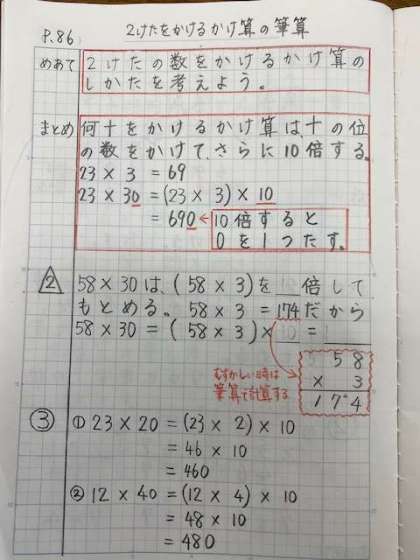 P.86
2けたをかけるかけ算の筆算
めあて
2けたの数をかけるかけ算の
しかたを考えよう。
まとめ
何十をかけるかけ算は、十の位
の数をかけて、さらに10倍する。
23 × 3 = 69
23 × 30 = (23 × 3) × 10
= 690 ← 10倍すると
0を1つたす。
2
58 × 30 は、( 58 × 3 )を 倍して
もとめる。 58 × 3 = 174 だから
58 × 30 = ( 58 × 3 ) × 10 =
むずかしい時は
筆算で計算する
58
× 3
174
③
① 23 × 20 = (23 × 2) × 10
= 46 × 10
= 460
② 12 × 40 = (12 × 4) × 10
= 48 × 10
= 480